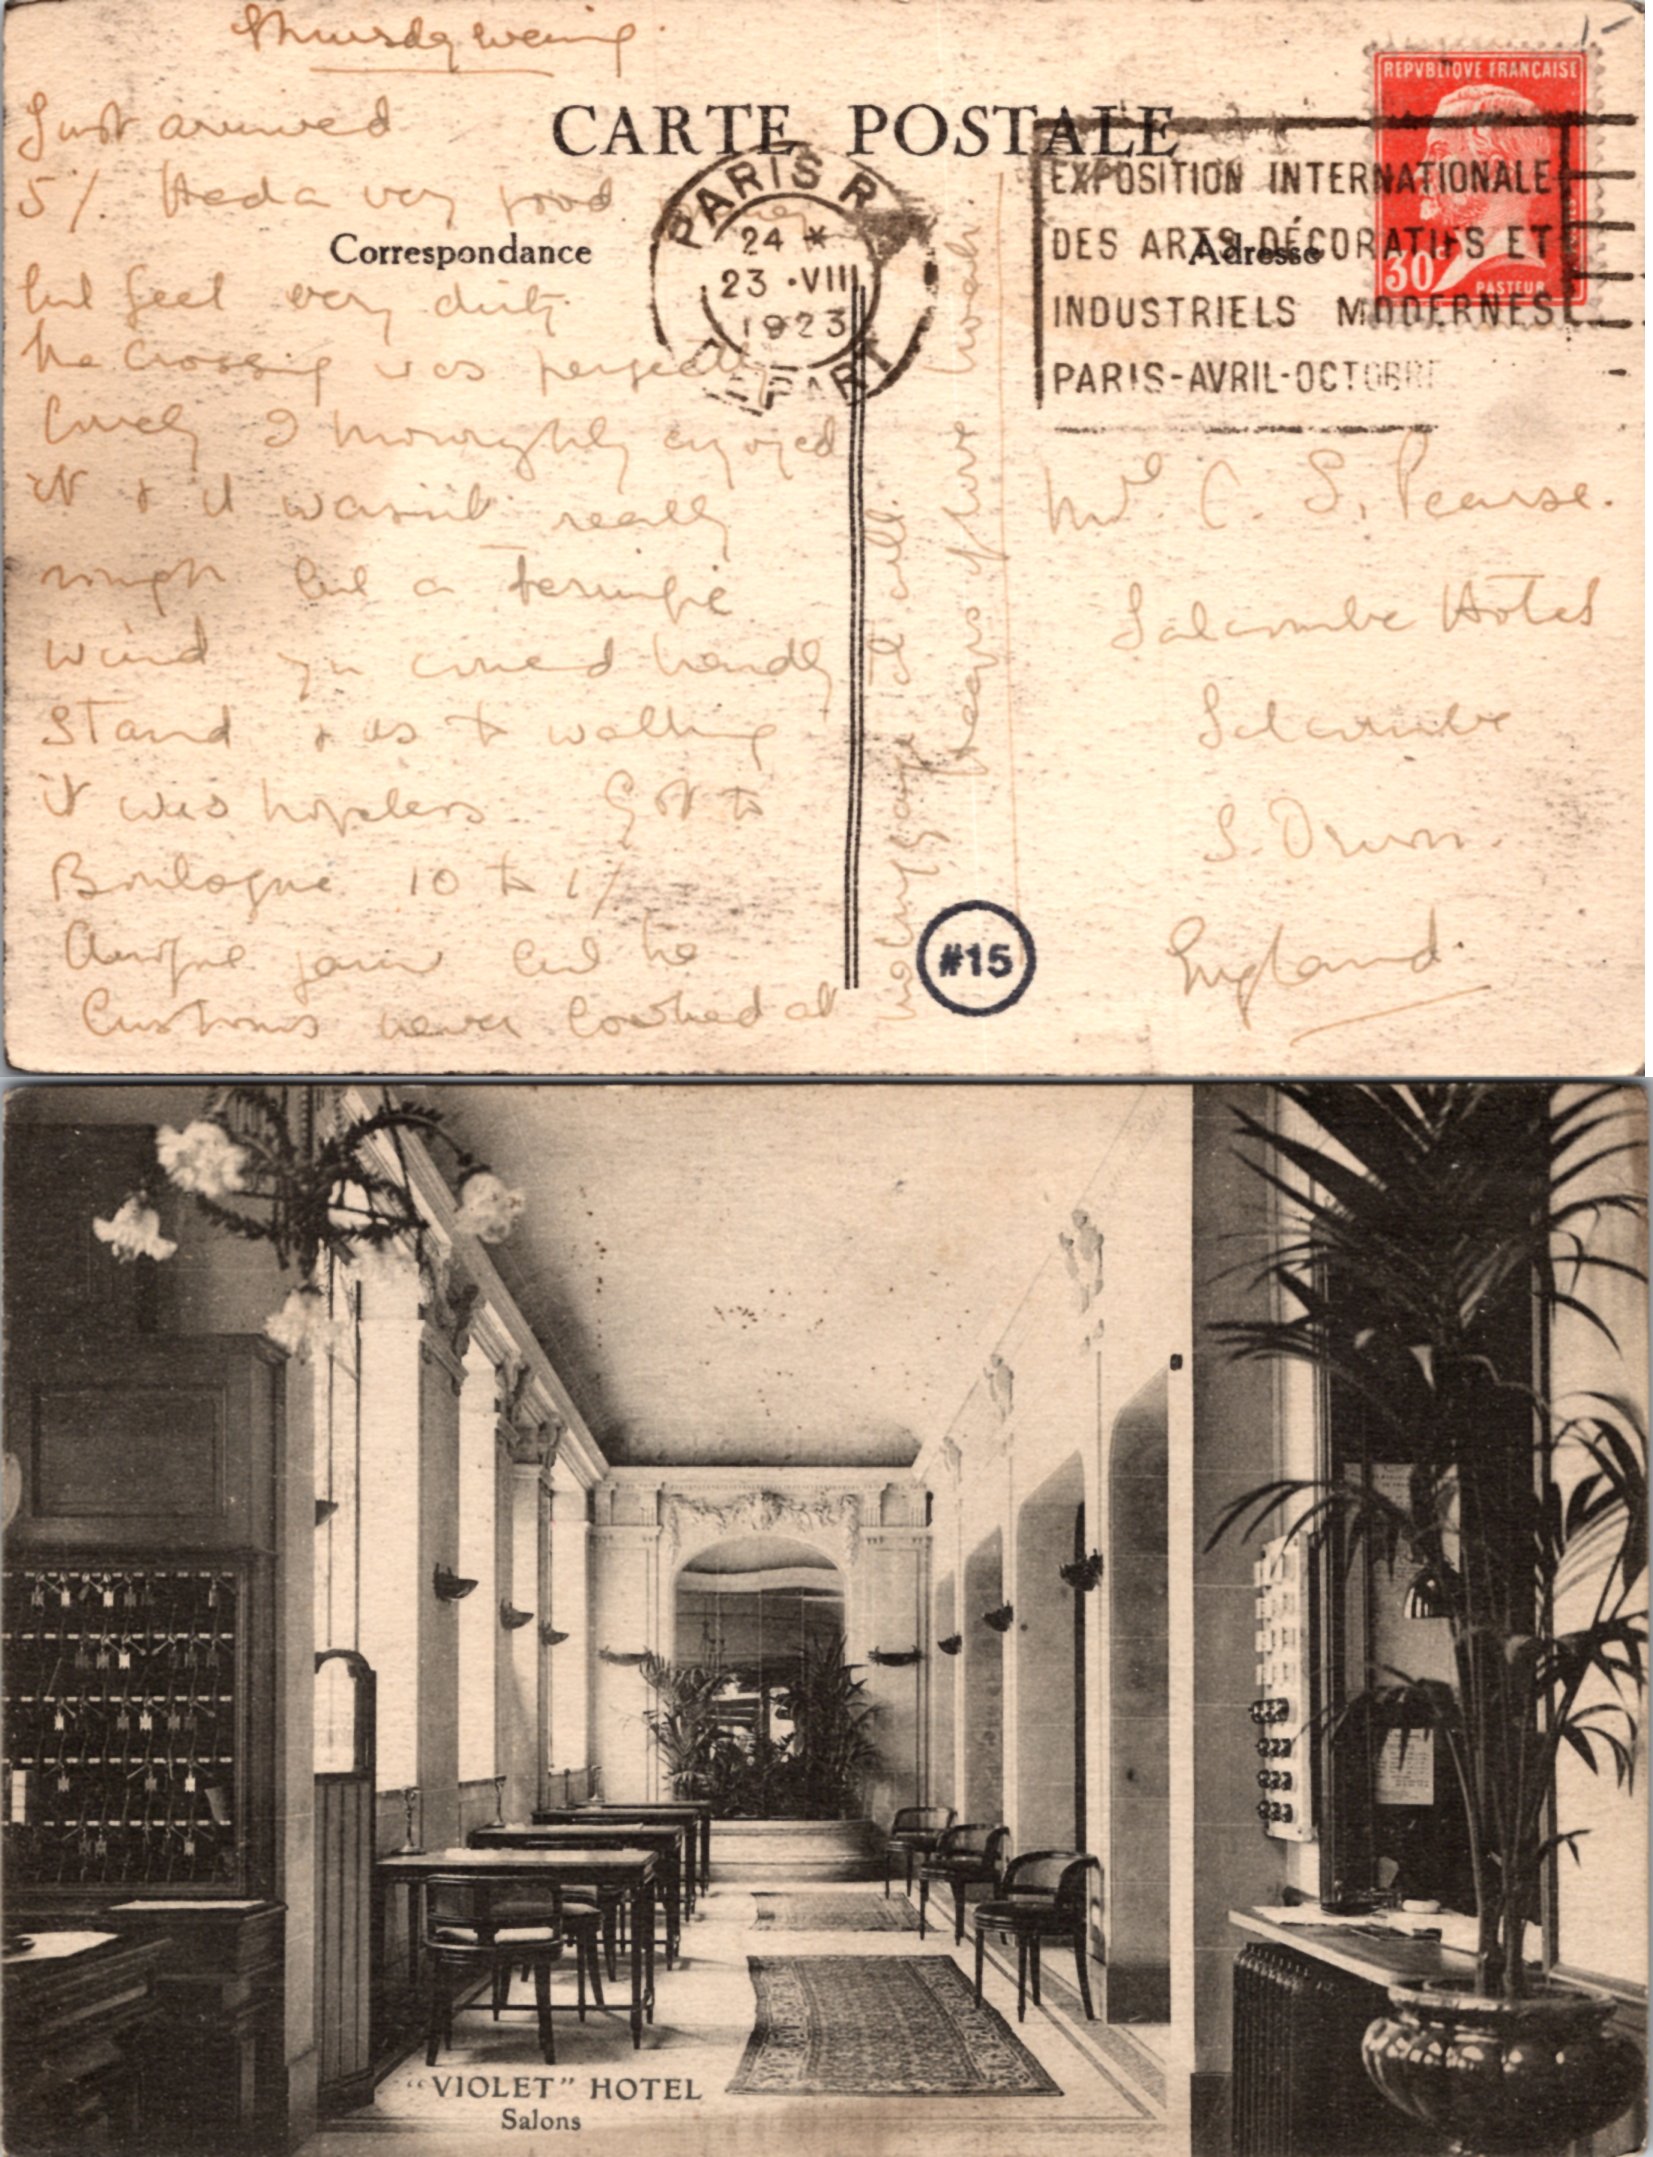 Thursday evening.
CARTE POSTALE
Correspondance
Adresse
REPVBLIQVE FRANÇAISE
30
PASTEUR
PARIS R
24 *
23 · VIII
1923
DEPART
EXPOSITION INTERNATIONALE
DES ARTS DÉCORATIFS ET
INDUSTRIELS MODERNES
PARIS-AVRIL-OCTOBRE
Just arrived
5/. Had a very good
but feel very dirty.
the crossing was perfectly
lovely I thoroughly enjoyed
it & it wasn't really
rough but a terrific
wind you could hardly
stand & as to walking
it was hopeless. Got to
Boulogne 10 to 1/
Awful jam but the
Customs never looked at
my luggage at all.
Heaps of love
C. S. Pearse.
Salcombe Hotel
Salcombe
S. Devon.
England.
#15
"VIOLET" HOTEL
Salons